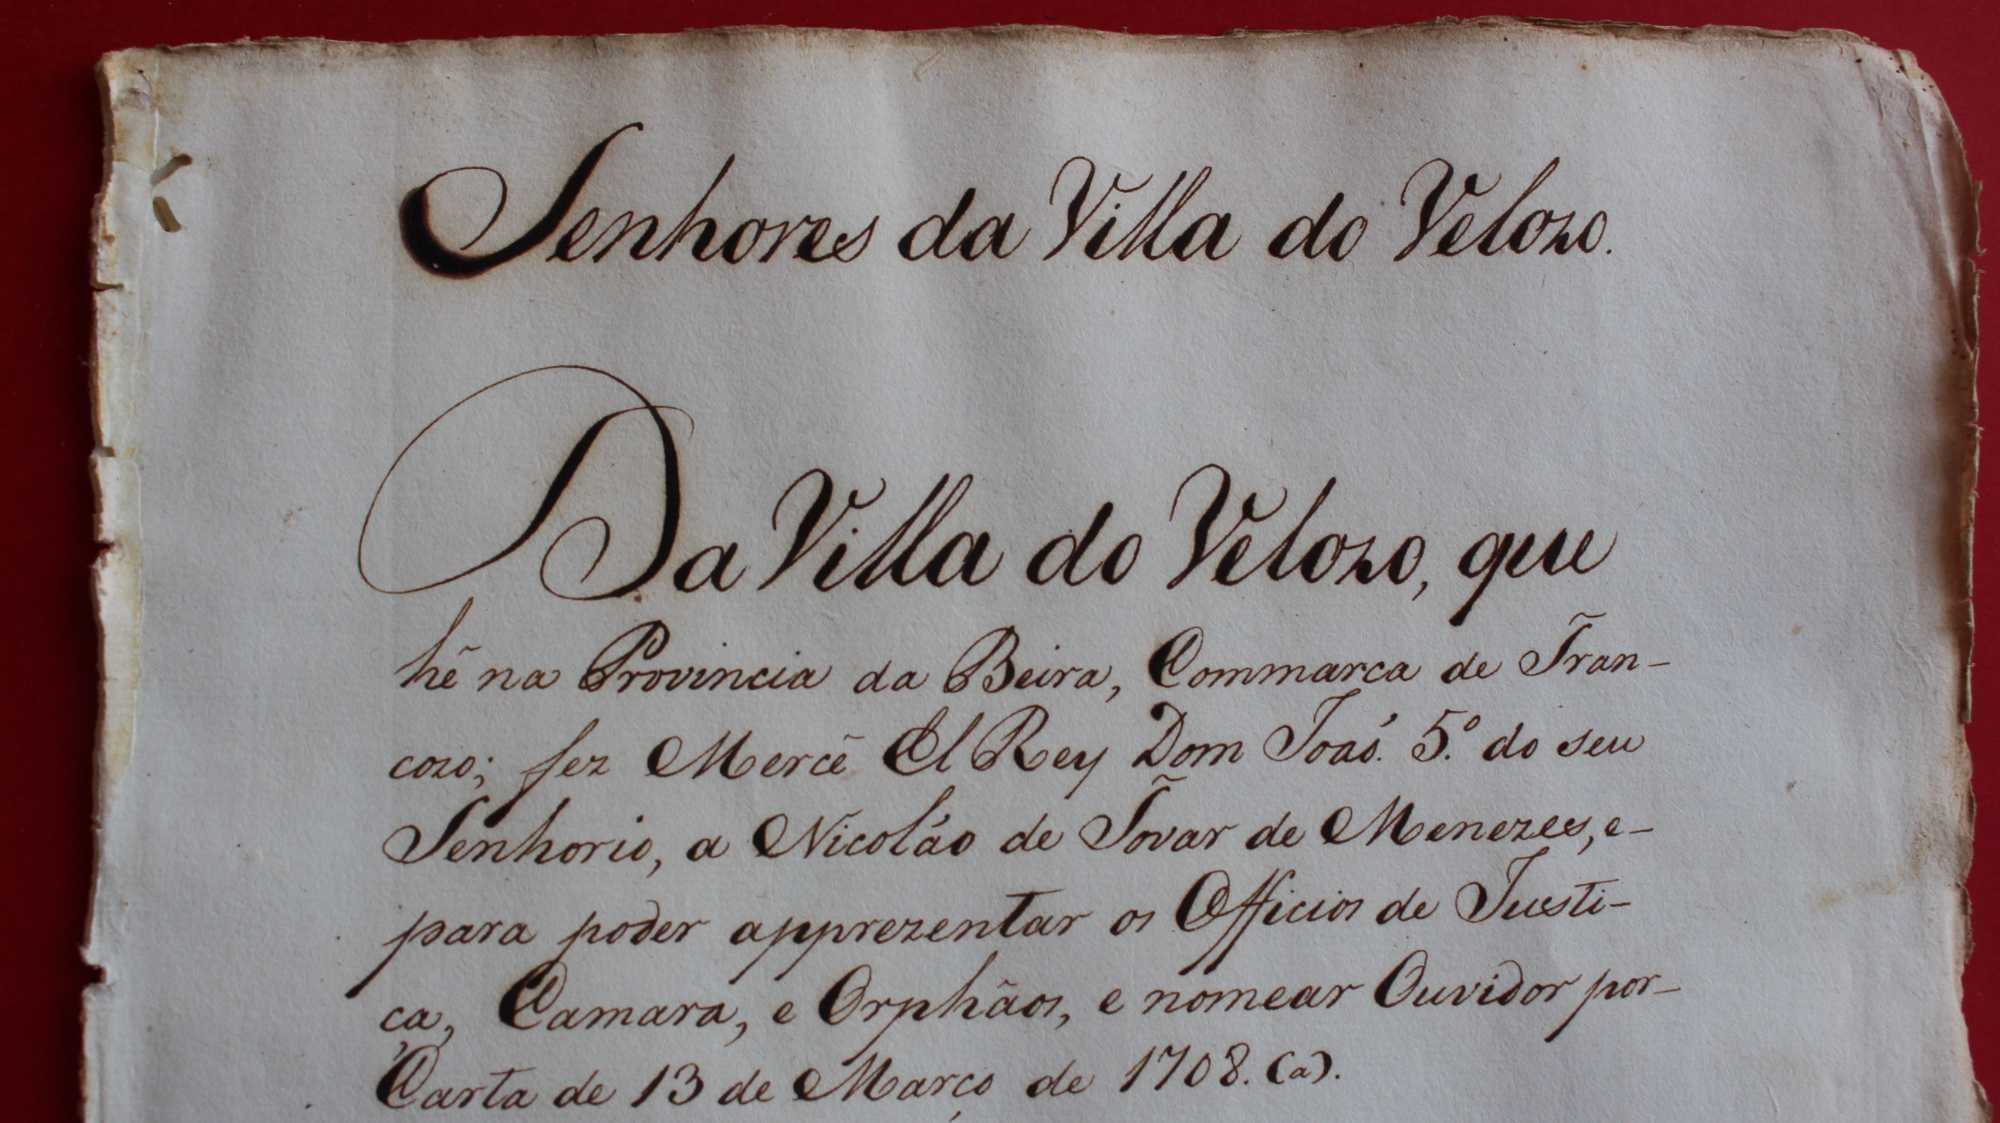 Senhores da Villa do Velozo.
Da Villa do Velozo, que
hê na Provincia da Beira, Commarca de Tran-
cozo; fez Mercê El Rey Dom Joaó. 5.º do seu
Senhorio, a Nicoláo de Tovar de Menezes, e-
para poder apprezentar os Officios de Justi-
ça, Camara, e Orphãos, e nomear Ouvidor por-
Carta de 13 de Março de 1708. (a).